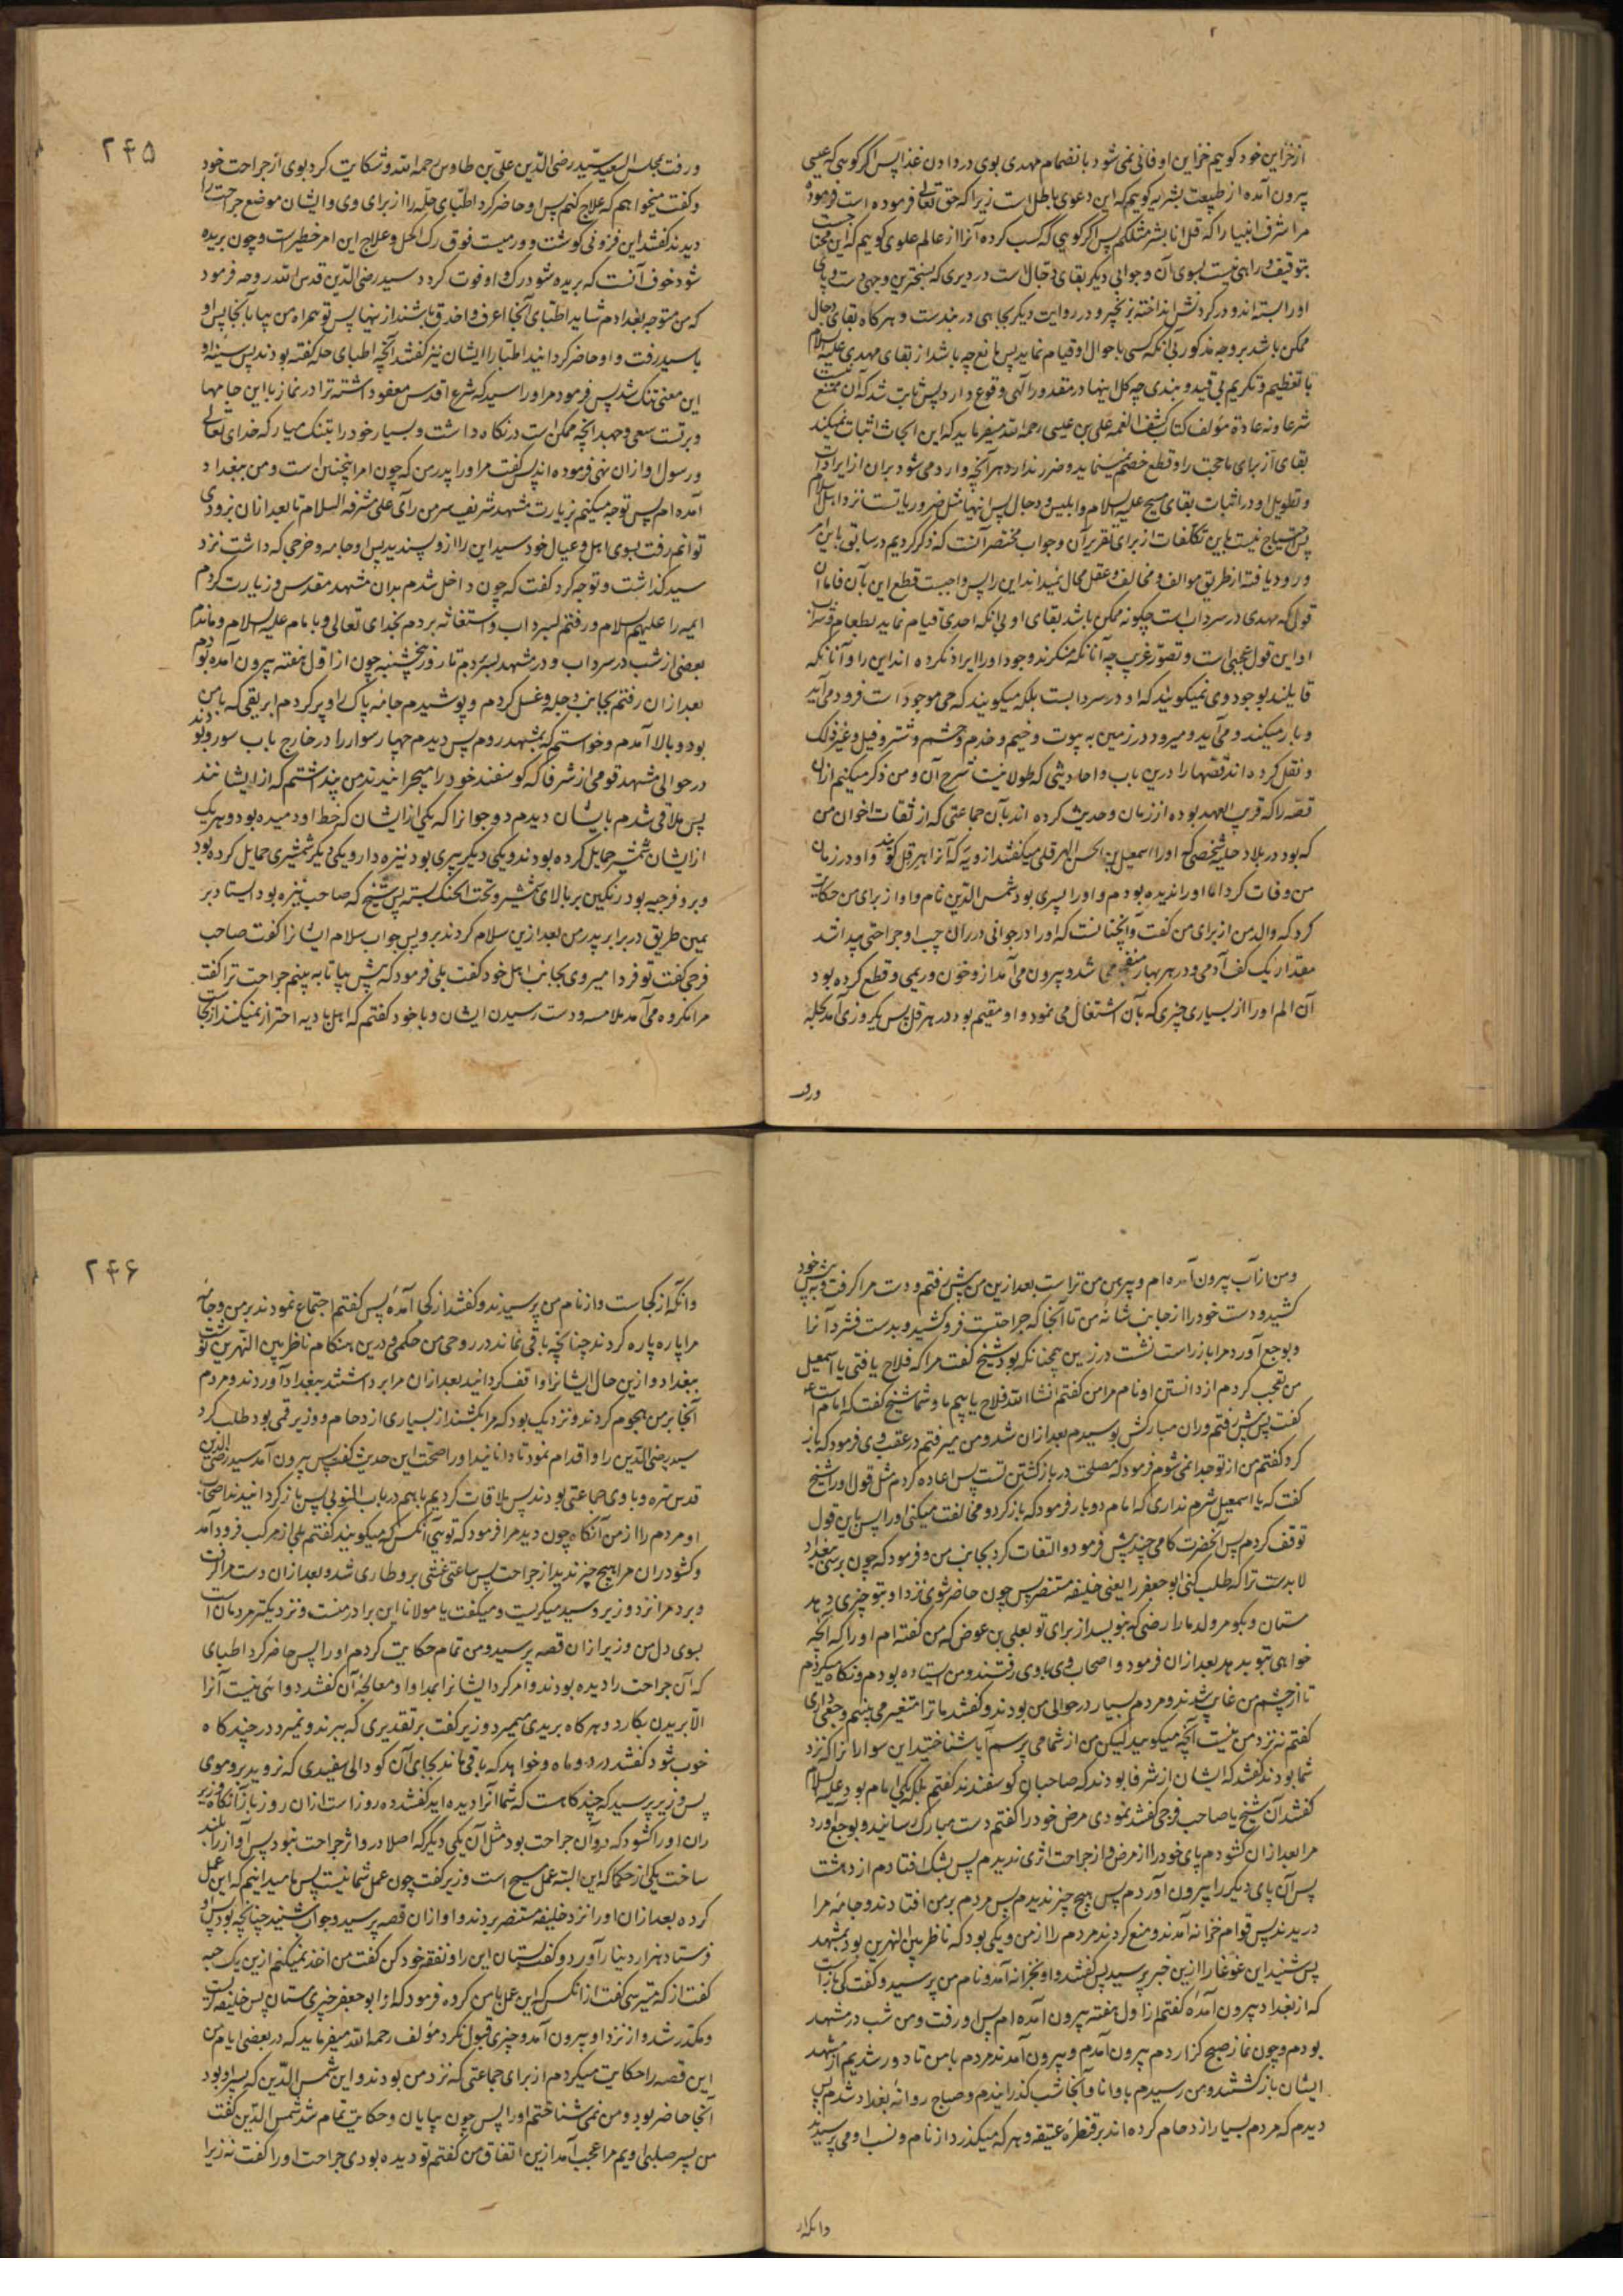 از خزاین خود کوییم خزاین او فانی نمی شود بانضمام مهدی بوی در دادن غذا پس اگر کویی که عیسی
بیرون آمده از طبیعت بشریه کوییم که این دعوی باطل است زیرا که حق تعالی فرموده است فرموده
مر اشرف انبیا را که قل انا بشر مثلکم پس اگر کویی که کسب کرده آنرا از عالم علوی کوییم که این محتاجست
بتوقیف و راهی نیست بسوی آن و جوابی دیگر بقای دجال است در دیری که بسختترین وجهی دست و پای
او را بسته اند و در گردنش انداخته زنجیر و در روایت دیگر بچاهی در بندست و هرگاه بقای دجال
ممکن باشد بر وجه مذکور بی آنکه کسی باحوال او قیام نماید پس مانع چه باشد از بقای مهدی علیه السلام
با تعظیم و تکریم بی قید و بندی چه کل اینها در مقدور الهی وقوع دارد پس ثابت شد که آن ممتنع نیست
شرعا و نه عادة مؤلف کتاب کشف الغمه علی بن عیسی رحمه الله میفرماید که این ابحاث اثبات نمیکند
بقای از برای ما حجت را و قطع خصم نمینماید و ضرر ندارد هر آنچه وارد می شود بران از ایرادات
و تطویل او در اثبات بقای مسیح علیه السلام و ابلیس و دجال پس اینها مثل ضروریاتست نزد اهل اسلام
پس احتیاج نیست باین تکلفات از برای تقریر آن و جواب مختصر آنست که ذکر کردیم در سابق باین امر
ورود یافته از طریق موالف و مخالف و عقل محال نمیداند این را پس واجبست قطع این بآن فاما آن
قول که مهدی در سرداب است چگونه ممکن باشد بقای او بی انکه احدی قیام نماید بطعام و شراب
او این قول عجبی است و تصور غریب چه آنانکه منکرند وجود او را ایراد نکرده اند این را و آنانکه
قایلند بوجود وی نمیکویند که او در سردابست بلکه میکویند که حی موجود است فرود می آید
و بار میکند و می آید و میرود در زمین به بیوت و خیم و خدم و حشم و شتر و فیل و غیر ذلک
و نقل کرده اند قصها را درین باب و احادیثی که طولانیست شرح آن و من ذکر میکنم ازان
قصه را که قریب العهد بوده از زمان و حدیث کرده اند بآن جماعتی که از ثقات اخوان من
که بود در بلاد حله شخصی که او را اسمعیل بن الحسن الهرقلی میکفتند از قریه که آنرا هرقل کویند و او در زمان
من وفات کرد اما او را ندیده بودم و او را پسری بود شمس الدین نام و او از برای من حکایت
کرد که والد من از برای من کفت و آنچنانست که او را در جوانی در ران چپ او جراحتی پیدا شد
مقدار یک کف آدمی و در هر بهار منفجر می شد و بیرون می آمد ازو خون و ریمی و قطع کرده بود
آن الم او را از بسیاری چیزی که بآن اشتغال می نمود و او مقیم بود در هرقل پس یکروزی آمد بحله
ورفت
۲۴۵
و رفت بمجلس السعید سید رضی الدین علی بن طاوس رحمه الله و شکایت کرد بوی از جراحت خود
و کفت میخواهم که علاج کنم پس او حاضر کرد اطبای حله را از برای وی و ایشان موضع جراحت را
دیدند کفتند این فزونی کوشت و ورمیست فوق رک اکحل و علاج این امر خطیرست و چون بریده
شود خوف آنست که بریده شود رک و او فوت کردد سید رضی الدین قدس الله روحه فرمود
که من متوجه بغدادم شاید اطبای آنجا اعرف و احذق باشند از اینها پس تو همراه من بیا بآنجا پس او
با سید رفت و او حاضر کردانید اطبا را ایشان نیز کفتند آنچه اطبای حله کفته بودند پس سینه او
این معنی تنک شد پس فرمود مر او را سید که شرع اقدس معفو داشته ترا در نماز با این جامها
و برتست سعی و جهد انچه ممکن است در نکاه داشت و بسیار خود را بتنک میار که خدای تعالی
و رسول او ازان نهی فرموده اند پس کفت مر او را پدر من که چون امر اینچنین است و من ببغداد
آمده ام پس توجه میکنم بزیارت مشهد شریف سر من رآی علی مشرفه السلام تا بعد ازان بزودی
توانم رفت بسوی اهل و عیال خود سید این را ازو پسندید پس او جامه و خرجی که داشت نزد
سید کذاشت و توجه کرد کفت که چون داخل شدم بدان مشهد مقدس و زیارت کردم
ایمه را علیهم السلام و رفتم بسرداب و استغاثه بردم بخدای تعالی و بامام علیه السلام و ماندم
بعضی از شب در سرداب و در مشهد بسر بردم تا روز پنجشنبه چون از اول هفته بیرون آمده بودم
بعد ازان رفتم بجانب دجله و غسل کردم و پوشیدم جامه پاک را و پر کردم ابریقی که با من
بود و بالا آمدم و خواستم که بمشهد روم پس دیدم چهار سوار را در خارج باب سور و بودند
در حوالی مشهد قومی از شرفا که کوسفند خود را میچرانیدند من پنداشتم که از ایشانند
پس ملاقی شدم بایشان دیدم دو جوانرا که یکی از ایشان که خط او دمیده بود و هر یک
از ایشان شمشیر حمایل کرده بودند و یکی دیگر پیری بود نیزه دار و یکی دیگر شمشیری حمایل کرده بود
و برو فرجیه بود رنکین بر بالای شمشیر و تحت الحنک بسته پس شیخ که صاحب نیزه بود ایستاد بر
یمین طریق در برابر پدر من بعد ازین سلام کردند برو پس جواب سلام ایشانرا کفت صاحب
فرجی کفت تو فردا میروی بجانب اهل خود کفت بلی فرمود که پیش بیا تا به بینم جراحت ترا کفت
مرا مکروه می آمد ملامسه و دست رسیدن ایشان و با خود کفتم که اهل بادیه احتراز نمیکنند از نجاست
و من از آب بیرون آمده ام و پیرهن من تراست بعد ازین من پیش رفتم و دست مرا کرفت و به پیش خود
کشید و دست خود را از جانب شانه من تا آنجا که جراحتست فرو کشید و بدست فشرد آنرا
و بوجع آورد مرا باز راست نشست در زین همچنانکه بود شیخ کفت مرا که فلاح یافتی یا اسمعیل
من تعجب کردم از دانستن او نام مرا من کفتم انشا الله فلاح یابیم ما و شما شیخ کفت که امام است
کفت پس پیش رفتم و ران مبارکش بوسیدم بعد ازان شد و من میرفتم در عقب وی فرمود که باز
کرد کفتم من از تو جدا نمی شوم فرمود که مصلحت در باز کشتن تست پس اعاده کردم مثل قول اورا شیخ
کفت که یا اسمعیل شرم نداری که امام دو بار فرمود که باز کرد و مخالفت میکنی او را پس باین قول
توقف کردم پس آنحضرت کامی چند پیش فرمود و التفات کرد بجانب من و فرمود که چون برسی ببغداد
لا بدست ترا که طلب کنی ابو جعفر را یعنی خلیفه مستنصر پس چون حاضر شوی نزد او بتو چیزی دهد
مستان و بکو مر ولد ما را رضی که بنویسد از برای تو بعلی بن عوض که من کفته ام او را که آنچه
خواهی بتو بدهد بعد ازان فرمود و اصحاب وی با وی رفتند و من ایستاده بودم و نکاه میکردم
تا از چشم من غایب شدند و مردم بسیار در حوالی من بودند و کفتند ما ترا متغیر می بینیم وجعی داری
کفتم نه نزد من نیست آنچه میکویید لیکن من از شما می پرسم آیا شناختید این سوارانرا که نزد
شما بودند کفتند که ایشان از شرفا بودند که صاحبان کوسفندند کفتم بلکه یکی امام بود علیه السلام
کفتند آن شیخ یا صاحب فرجی کفتند نمودی مرض خود را کفتم دست مبارک رسانید و بوجع آورد
مرا بعد ازان کشودم پای خود را از مرض و از جراحت اثری ندیدم پس بشک افتادم از دهشت
پس آن پای دیگر را بیرون آوردم پس هیچ چیز ندیدم پس مردم بر من افتادند و جامه مرا
دریدند پس قوام خزانه آمدند و منع کردند مردم را از من و یکی بود که ناظر بین النهرین بود بمشهد
پس شنید این غوغا را ازین خبر پرسید پس کفتند و او بخزانه آمد و نام من پرسید و کفت کی بازست
که از بغداد بیرون آمدهٔ کفتم از اول هفته بیرون آمده ام پس او رفت و من شب در مشهد
بودم و چون نماز صبح کزاردم بیرون آمدم و بیرون آمدند مردم با من تا دور شدیم از مشهد
ایشان باز کشتند و من رسیدم باوانا و آنجا شب کذرانیدم و صباح روانه بغداد شدم پس
دیدم که مردم بسیار ازدحام کرده اند بر قنطره عتیقه و هر که میکذرد از نام و نسب او می پرسیدند
و انکه از
۲۴۶
و انکه از کجاست و از نام من پرسیدند و کفتند از کجا آمدهٔ پس کفتم اجتماع نمودند بر من و جامه
مرا پاره پاره کردند چنانچه باقی نماند در روحی من حکمی و درین هنکام ناظر بین النهرین نوشت
ببغداد و ازین حال ایشانرا واقف کردانید بعد ازان مرا برداشتند ببغداد آوردند و مردم
آنجا بر من هجوم کردند و نزدیک بود که مرا بکشند از بسیاری ازدحام و وزیر قمی بود طلب کرد
سید رضی الدین را و اقدام نمود تا دانا نید او را صحت این حدیث کفت پس بیرون آمد سید رضی الدین
قدس سره و با وی جماعتی بودند پس ملاقات کردیم با هم در باب النوبی پس باز کردانیدند اصحاب
او مردم را از من آنکاه چون دید مرا فرمود که تویی آنکس که میکویند کفتم بلی از مرکب فرود آمد
و کشود ران مرا هیچ چیز ندید از جراحت پس ساعتی غشی برو طاری شد و بعد ازان دست مرا کرفت
و برد مرا نزد وزیر و سید میکریست و میکفت یا مولانا این برادر منست و نزدیکتر مردمان است
بسوی دل من وزیر ازان قصه پرسید و من تمام حکایت کردم او را پس حاضر کرد اطبای
که آن جراحت را دیده بودند و امر کرد ایشانرا بمداوا و معالجه آن کفتند دوائی نیست آنرا
الا بریدن بکارد و هرگاه بریدی میمیرد وزیر کفت بر تقدیری که ببرند و نمیرد در چندکاه
خوب شود کفتند در دو ماه و خواهد که باقی ماند بجای آن کودالی سفیدی که نروید برو موی
پس وزیر پرسید که چند کاهست که شما آنرا دیده اید کفتند ده روز است ازان روز باز آنکاه وزیر
ران او را کشود که در آن جراحت بود مثل آن یکی دیگر که اصلا درو اثر جراحت نبود پس آواز را بلند
ساخت یکی از حکما که این البته عمل مسیح است وزیر کفت چون عمل شما نیست پس ما میدانیم که این عمل
کرده بعد ازان او را نزد خلیفه مستنصر بردند و او ازان قصه پرسید و جواب شنید چنانچه بود پس او
فرستاد هزار دینار آورد و کفت بستان این را و نفقه خود کن کفت من اخذ نمیکنم ازین یک حبه
کفت از که میترسی کفت از انکس که این عمل با من کرده فرمود که از ابو جعفر چیزی مستان پس خلیفه کریست
و مکدر شد و از نزد او بیرون آمد و چیزی قبول نکرد مؤلف رحمه الله میفرماید که در بعضی ایام من
این قصه را حکایت میکردم از برای جماعتی که نزد من بودند و این شمس الدین که پسر او بود
آنجا حاضر بود و من نمی شناختم او را پس چون بپایان و حکایت تمام شد شمس الدین کفت
من پسر صلبی اویم مرا عجب آمد ازین اتفاق من کفتم تو دیده بودی جراحت او را کفت نه زیرا